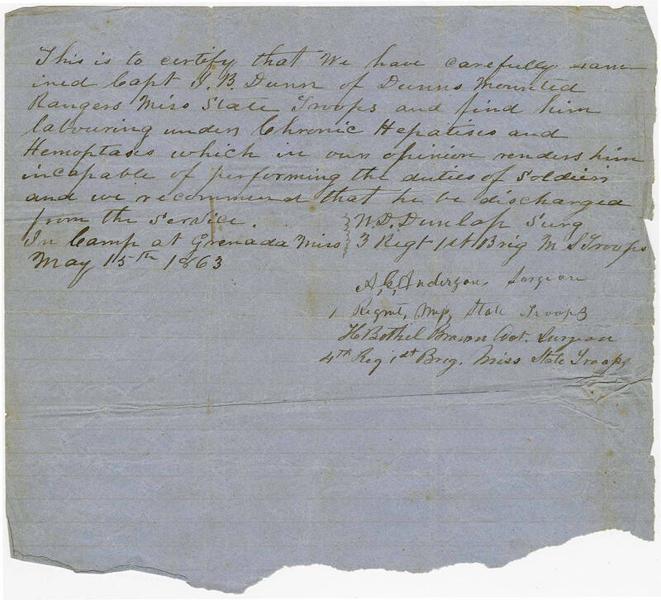 This is to certify that We have carefully exam
ined Capt J. B. Dunn of Dunns Mounted
Rangers Miss State Troops and find him
labouring under Chronic Hepatises and
Hemoptases which in our opinion renders him
incapable of performing the duties of Soldier
and we recommend that he be discharged
from the Service.
In Camp at Grenada Miss
May 15th 1863
N. D. Dunlap Surg
3 Regt 1st Brig M S Troops
A. C. Anderson, Surgeon
1 Regmt, State Troops
H Bethel Brown Surgeon
4th Reg 1st Brig. Miss State Troops